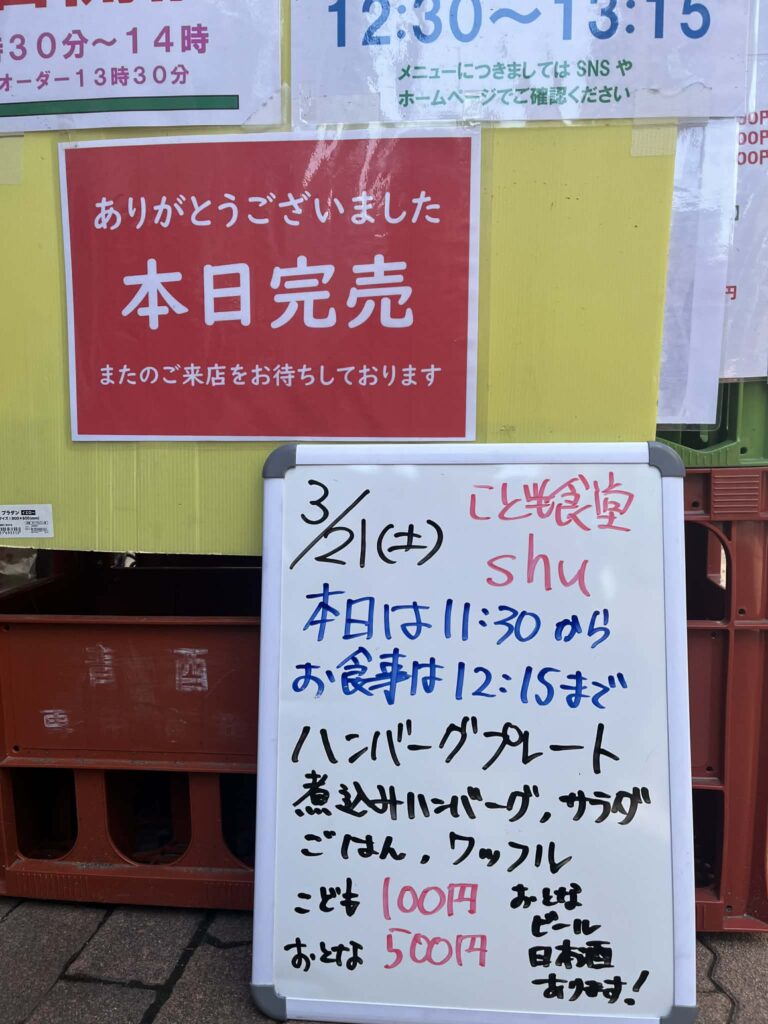 時30分～14時
オーダー13時30分
12:30～13:15
メニューにつきましてはSNSや
ホームページでご確認ください
ありがとうございました
本日完売
またのご来店をお待ちしております
プラダン
3/21(土)
こども食堂
shu
本日は11:30から
お食事は12:15まで
ハンバーグプレート
煮込みハンバーグ,サラダ
ごはん,ワッフル
こども 100円
おとな 500円
おとな
ビール
日本酒
あります!